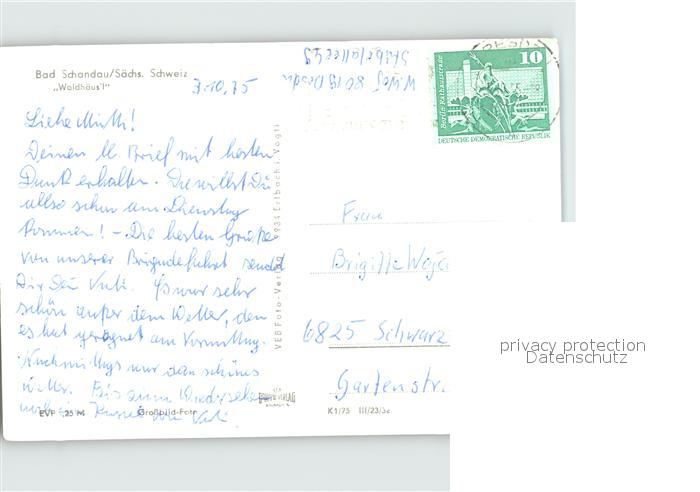 Bad Schandau/Sächs. Schweiz
„Waldhäus'l"
7.10.75
8019 Dresd
10
Berlin-Rathausstraße
DEUTSCHE DEMOKRATISCHE REPUBLIK
Liebe Mutti!
Deinen lb. Brief mit besten
Dank erhalten. Du willst Du
also schon am Dienstag
kommen! - Die besten Grüße
von unserer Brigadefahrt sendet
Dir Dein Vati. Es war sehr
schön außer dem Wetter, den
es hat geregnet am Vormittag.
Nachmittags war dan schönes
Wetter. Bis zum Wiedersehen
Vati.
VEB Foto-Verlag 9934 Erlbach i. Vogtl
Frau
Brigitte
6825 Schwarz
Gartenstr.
EVP -,25 M
Großbild-Foto
K 1/75 III/23/32
privacy protection
Datenschutz